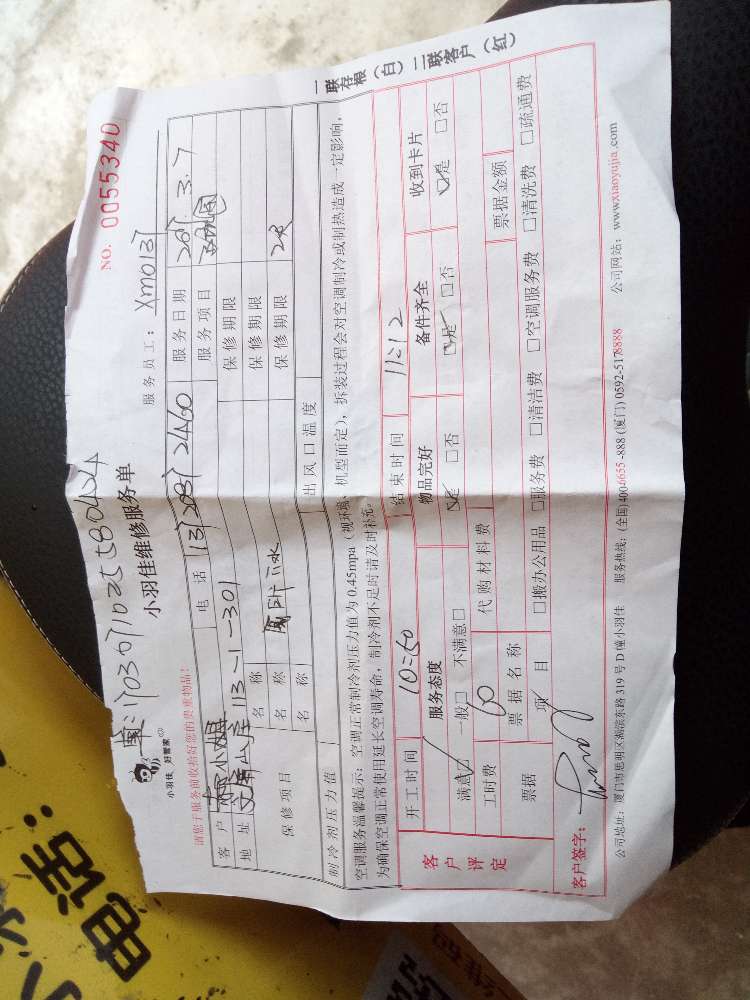 NO. 0055340
单:1703071025580424
小羽佳 好管家
小羽佳维修服务单
服务员工: Xm0137
请您于服务前收拾好您的贵重物品!
客户 电话 服务日期 2017.3.7
地址 文屏山庄113-1-301 服务项目
保修项目 名称 保修期限
名称 保修期限
名称 保修期限
制冷剂压力值 出风口温度
空调服务温馨提示: 空调正常制冷剂压力值为 0.45mpa (视环境、机型而定), 拆装过程会对空调制冷或制热造成一定影响,
为确保空调正常使用延长空调寿命, 制冷剂不足时请及时补充。
客户评定 开工时间 10:50 结束时间 11:12
服务态度 物品完好 备件齐全 收到卡片
满意□ 一般□ 不满意□ □是 □否 □是 □否 □是 □否
工时费 60 代购材料费
票据 票据名称 票据金额
项目 □搬办公用品 □服务费 □清洁费 □空调服务费 □清洗费 □疏通费
客户签字:
公司地址: 厦门市思明区湖滨东路 319 号 D 幢小羽佳 服务热线: (全国) 4006655-888 (厦门) 0592-5178888 公司网站: www.xiaoyujia.com
一联存根 (白) 二联客户 (红)
电话: